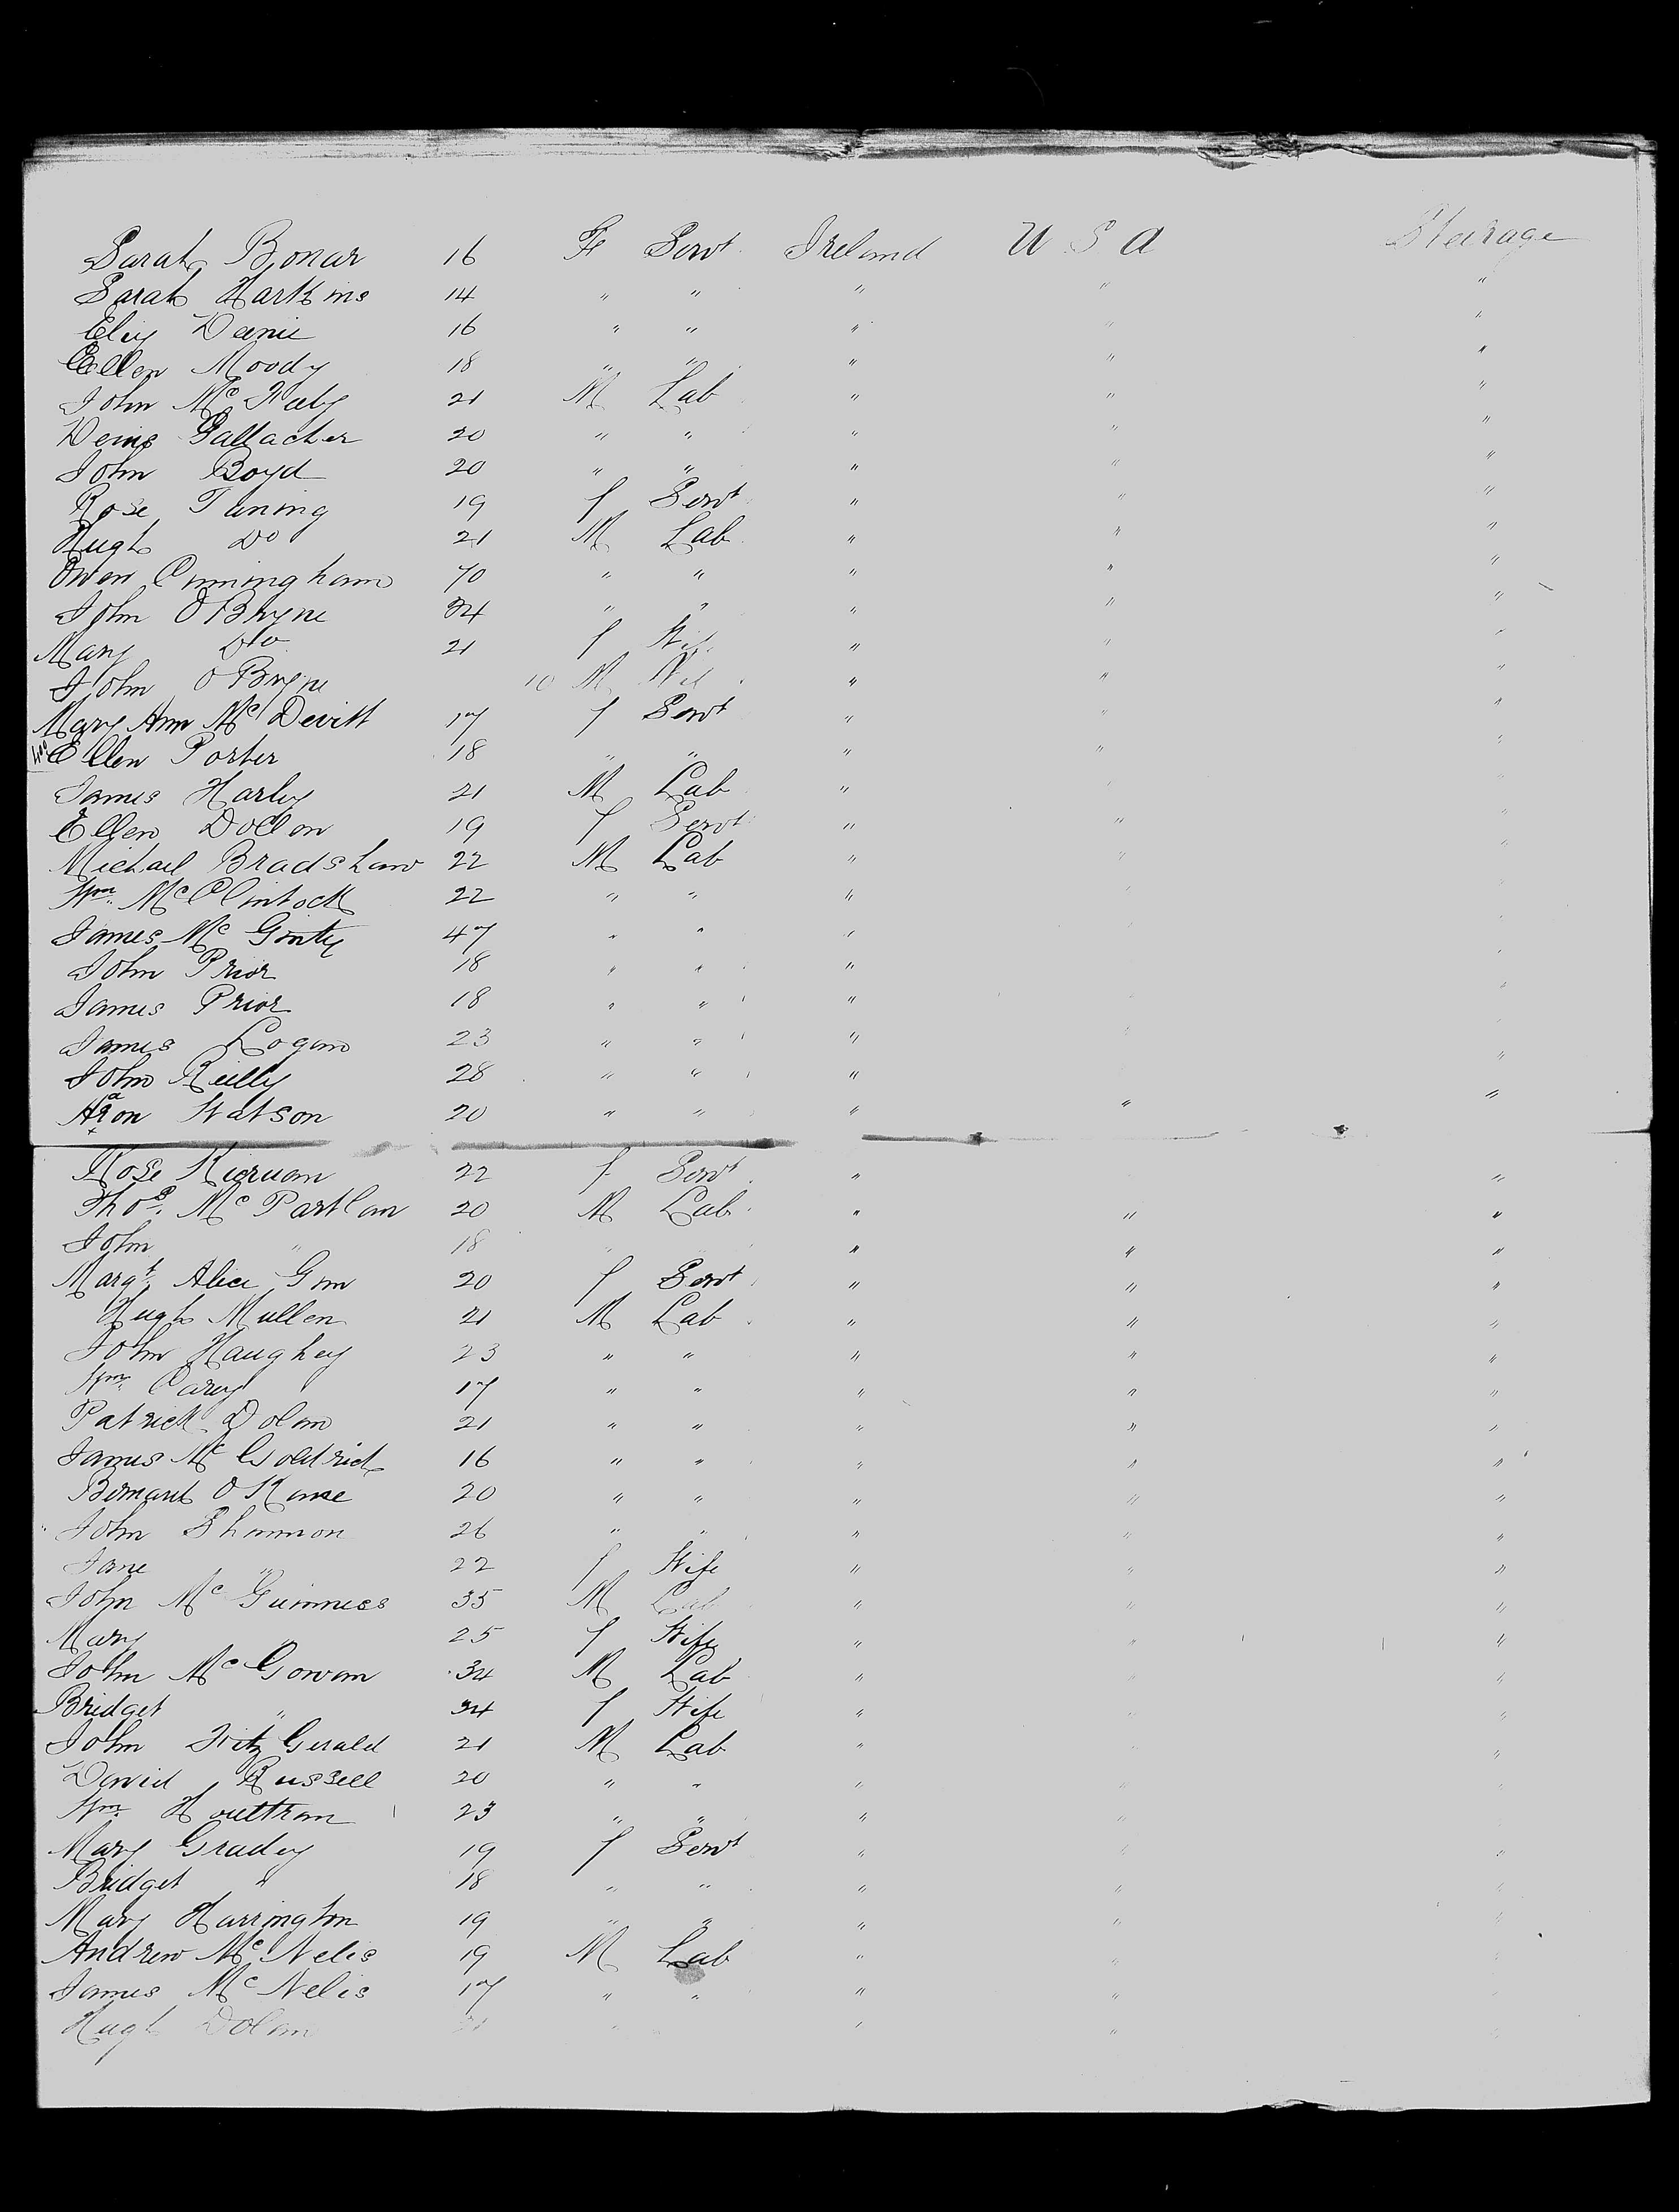 Sarah Bonar 16 Fe Servt. Ireland U S A Steerage
Sarah Harkins 14 " " " " "
16 " " " " "
Ellen Moody 18 " " " " "
John Mc 21 M Lab " " "
Denis Gallacher 20 " " " " "
John Boyd 20 " " " " "
Rose 19 f Servt " " "
Hugh Do 21 M Lab. " " "
Owen Cunningham 70 " " " " "
John O Bryne 34 " " " " "
Mary Do 21 f " " "
John O Bryne 10 M " " "
Mary Ann Mc Devitt 17 f Servt " " "
400 Ellen Porter 18 " " " " "
James Harley 21 M Lab " " "
Ellen 19 f Servt " " "
Michael Bradshaw 22 M Lab " " "
Wm. McClintock 22 " " " " "
James Mc Ginty 47 " " " "
John Prior 18 " " " "
James Prior 18 " " " "
James Logan 23 " " " "
John Reilly 28 " " " "
Aaron Watson 20 " " " " "
Rose Kiernan 22 f Servt. " "
Thos. Mc Partlan 20 M Lab. " " "
John " 18 " " "
Margt. Alice 20 f Servt. " " "
Hugh Mullen 21 M Lab. " " "
John Haughey 23 " " " " "
Wm. Carey 17 " " " " "
Patrick Dolan 21 " " " " "
James Mc Goldrick 16 " " " " "
Bernard O Kane 20 " " " " "
John Shannon 26 " " " " "
Jane " 22 f Wife " " "
John Mc Guinness 35 M Lab " " "
Mary " 25 f Wife " " "
John Mc Gowan 34 M Lab " " "
Bridget " 34 f Wife " " "
John Fitz Gerald 21 M Lab " " "
David Russell 20 " " " " "
Wm. 23 " " " " "
Mary Gradey 19 f Servt " " "
Bridget " 18 " " " " "
Mary Harrington 19 " " " " "
Andrew Mc Nelis 19 M Lab " "
James Mc Nelis 17 " " " " "
Hugh Dolan " " " "